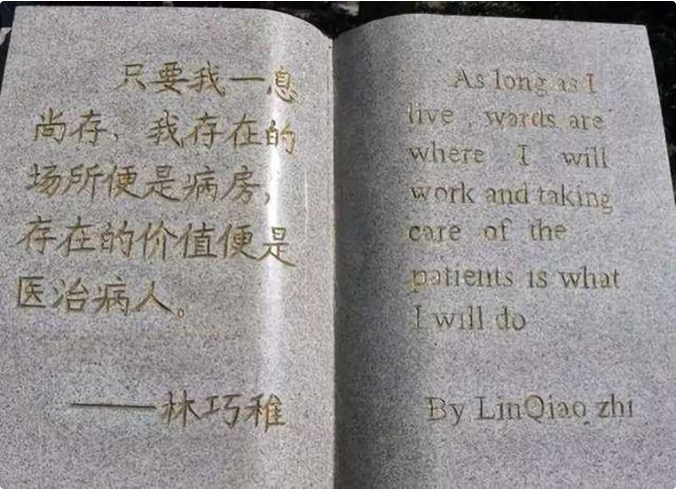 只要我一息
尚存，我存在的
场所便是病房，
存在的价值便是
医治病人。
——林巧稚
As long as I
live , wards are
where I will
work and taking
care of the
patients is what
I will do
By LinQiao zhi